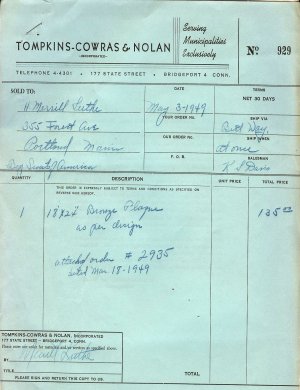 TOMPKINS-COWRAS & NOLAN
INCORPORATED
Serving
Municipalities
Exclusively
No 929
TELEPHONE 4-4301 · 177 STATE STREET · BRIDGEPORT 4 CONN.
SOLD TO:
H Merrill Luthe
355 Forest Ave
Portland Maine
DATE
May 3-1949
YOUR ORDER NO.
OUR ORDER NO.
F. O. B.
TERMS
NET 30 DAYS
SHIP VIA
Best Way
SHIP WHEN
at once
SALESMAN
QUANTITY
DESCRIPTION
UNIT PRICE
TOTAL PRICE
THIS ORDER IS EXPRESSLY SUBJECT TO TERMS AND CONDITIONS AS SPECIFIED ON
REVERSE SIDE HEREOF.
1 18x24 Bronze Plaque 135.00
as per design
attached order # 2935
dated Mar. 18-1949
TOMPKINS-COWRAS & NOLAN, INCORPORATED
177 STATE STREET - BRIDGEPORT 4, CONN.
Please enter our order for material and/or services as specified above.
BY: Merrill Luthe
TITLE:
PLEASE SIGN AND RETURN THIS COPY TO US.
TOTAL